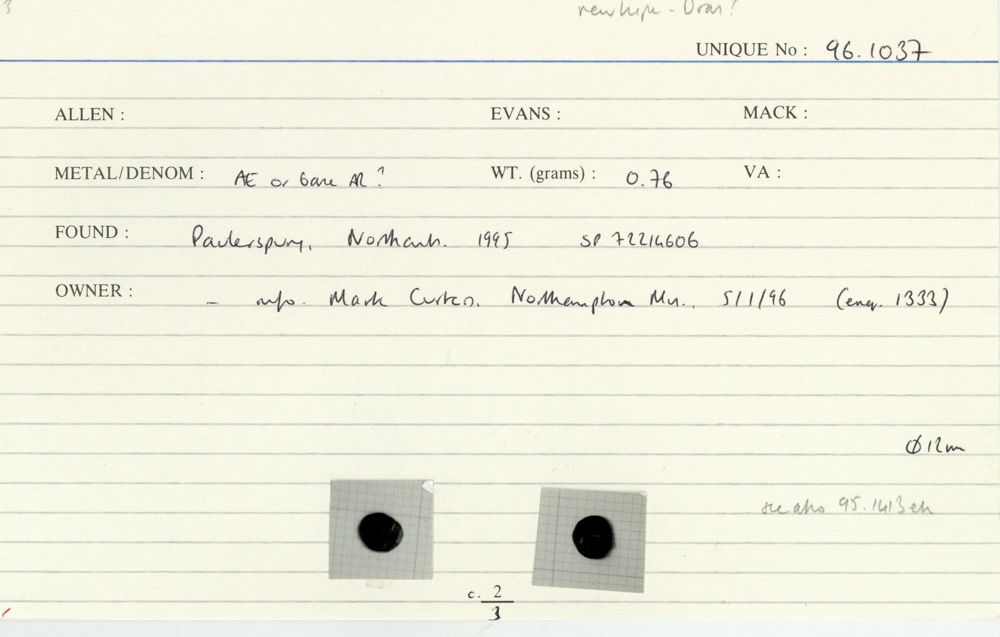 3
new type - Oval?
UNIQUE No : 96.1037
ALLEN : EVANS : MACK :
METAL/DENOM : AE or base AR? WT. (grams) : 0.76 VA :
FOUND : Paulerspury, Northants. 1995 SP 72214606
OWNER : - info. Mark Curteis, Northampton Mus., 5/1/96 (enq. 1333)
Ø 12m
see also 95.1413 etc
c. 2
3